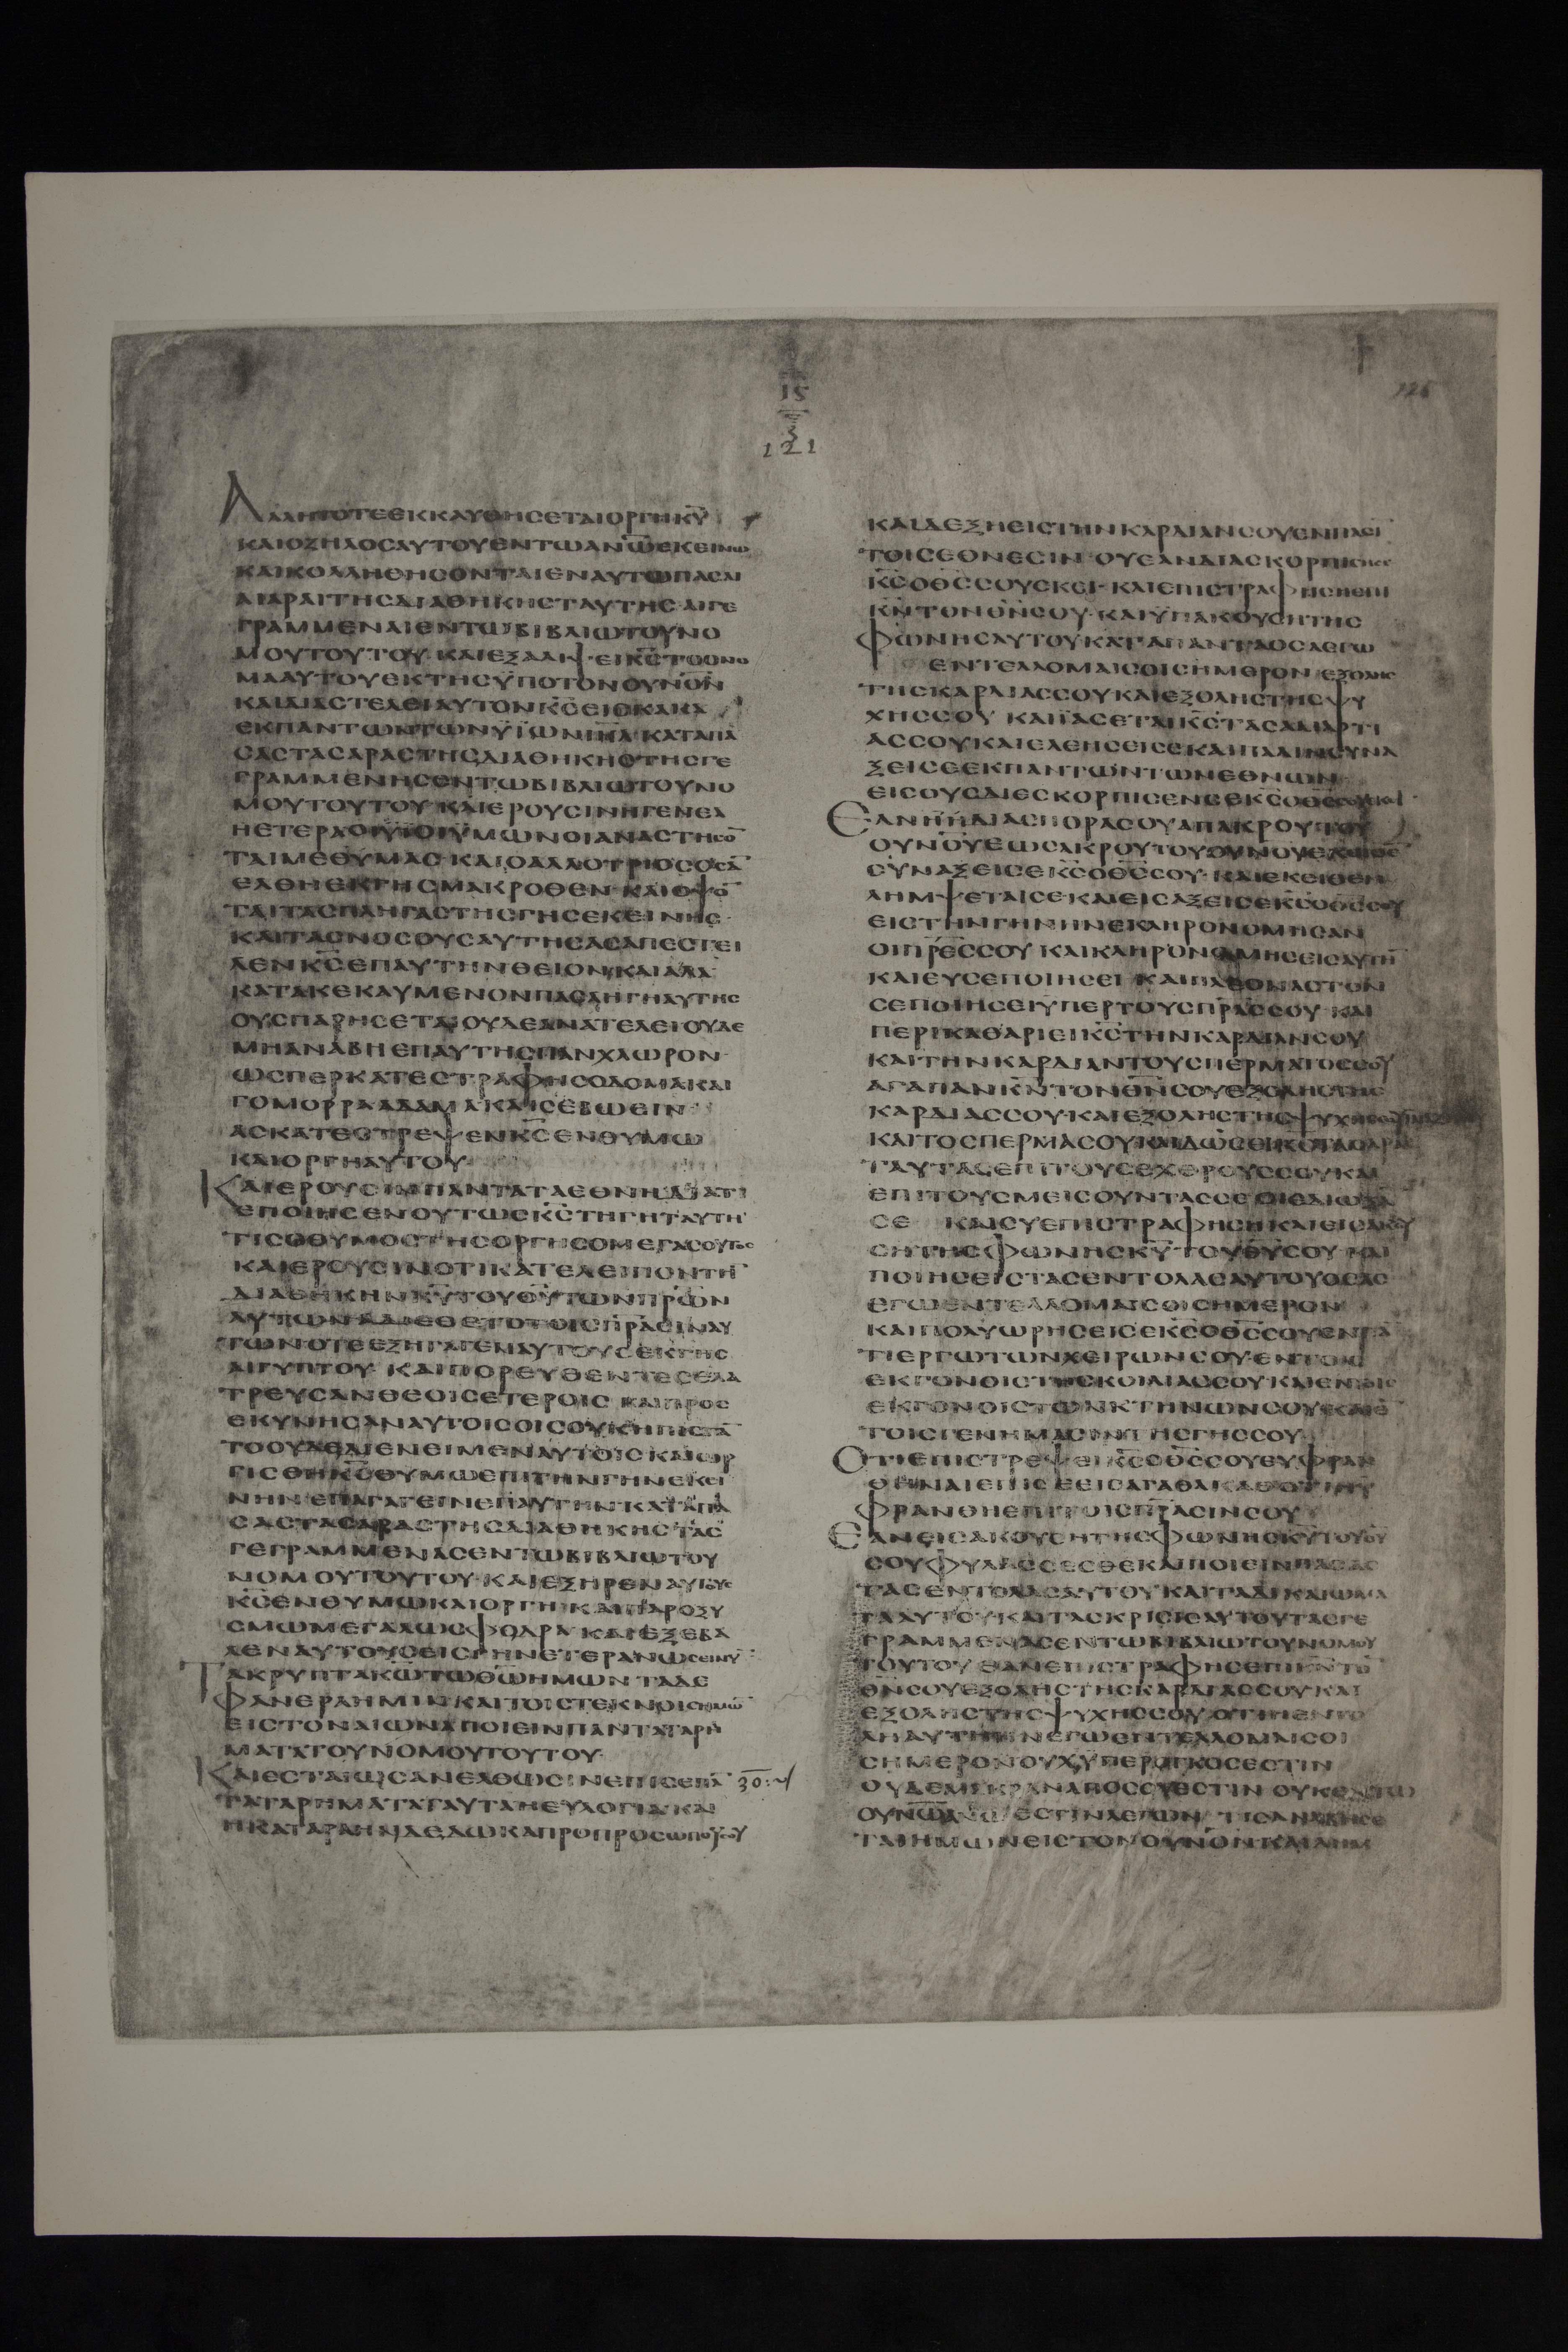 15
3
121
126
ΑΛΛΗΤΟΤΕΕΚΚΑΥΘΗΣΕΤΑΙΟΡΓΗΚΥ
ΚΑΙΟΖΗΛΟΣΑΥΤΟΥΕΝΤΩΑΝΩΕΚΕΙΝΩ
ΚΑΙΚΟΛΛΗΘΗΣΟΝΤΑΙΕΝΑΥΤΩΠΑΣΑΙ
ΑΙΑΡΑΙΤΗΣΔΙΑΘΗΚΗΣΤΑΥΤΗΣ ΑΙΓΕ
ΓΡΑΜΜΕΝΑΙΕΝΤΩΒΙΒΛΙΩΤΟΥΝΟ
ΜΟΥΤΟΥΤΟΥ ΚΑΙΕΞΑΛΙΨΕΙΚΣΤΟΟΝΟ
ΜΑΑΥΤΟΥΕΚΤΗΣΥΠΟΤΟΝΟΥΝΟΝ
ΚΑΙΔΙΑΣΤΕΛΕΙΑΥΤΟΝΚΣΕΙΣΚΑΚΑ
ΕΚΠΑΝΤΩΝΤΩΝΥΙΩΝΙΗΛ ΚΑΤΑΠΑ
ΣΑΣΤΑΣΑΡΑΣΤΗΣΔΙΑΘΗΚΗΣΤΗΣΓΕ
ΓΡΑΜΜΕΝΗΣΕΝΤΩΒΙΒΛΙΩΤΟΥΝΟ
ΜΟΥΤΟΥΤΟΥ ΚΑΙΕΡΟΥΣΙΝΗΓΕΝΕΑ
ΗΕΤΕΡΑΟΙΥΙΟΙΥΜΩΝΟΙΑΝΑΣΤΗΣΟ
ΤΑΙΜΕΘΥΜΑΣ ΚΑΙΟΑΛΛΟΤΡΙΟΣΟΣΑ
ΕΛΘΗΕΚΓΗΣΜΑΚΡΟΘΕΝ ΚΑΙΟΨΟ
ΤΑΙΤΑΣΠΛΗΓΑΣΤΗΣΓΗΣΕΚΕΙΝΗΣ
ΚΑΙΤΑΣΝΟΣΟΥΣΑΥΤΗΣΑΣΑΠΕΣΤΕΙ
ΛΕΝΚΣΕΠΑΥΤΗΝΘΕΙΟΝΚΑΙΑΛΑ
ΚΑΤΑΚΕΚΑΥΜΕΝΟΝΠΑΣΑΗΓΗΑΥΤΗΣ
ΟΥΣΠΑΡΗΣΕΤΑΙΟΥΔΕΑΝΑΤΕΛΕΙΟΥΔΕ
ΜΗΑΝΑΒΗΕΠΑΥΤΗΣΠΑΝΧΛΩΡΟΝ
ΩΣΠΕΡΚΑΤΕΣΤΡΑΦΗΣΟΔΟΜΑΚΑΙ
ΓΟΜΟΡΡΑΑΔΑΜΑΚΑΙΣΕΒΩΕΙΝ
ΑΣΚΑΤΕΣΤΡΕΨΕΝΚΣΕΝΘΥΜΩ
ΚΑΙΟΡΓΗΑΥΤΟΥ
ΚΑΙΕΡΟΥΣΙΝΠΑΝΤΑΤΑΕΘΝΗΔΙΑΤΙ
ΕΠΟΙΗΣΕΝΟΥΤΩΣΚΣΤΗΓΗΤΑΥΤΗ
ΤΙΣΟΘΥΜΟΣΤΗΣΟΡΓΗΣΟΜΕΓΑΣΟΥΤΟΣ
ΚΑΙΕΡΟΥΣΙΝΟΤΙΚΑΤΕΛΕΙΠΟΝΤΗ
ΔΙΑΘΗΚΗΝΚΥΤΟΥΘΥΤΩΝΠΡΩΝ
ΑΥΤΩΝΑΔΙΕΘΕΤΟΤΟΙΣΠΡΑΣΙΝΑΥ
ΤΩΝΟΤΕΕΞΗΓΑΓΕΝΑΥΤΟΥΣΕΚΓΗΣ
ΑΙΓΥΠΤΟΥ ΚΑΙΠΟΡΕΥΘΕΝΤΕΣΕΛΑ
ΤΡΕΥΣΑΝΘΕΟΙΣΕΤΕΡΟΙΣ ΚΑΙΠΡΟΣ
ΕΚΥΝΗΣΑΝΑΥΤΟΙΣΟΙΣΟΥΚΗΠΙΣΤΑ
ΤΟΟΥΔΕΔΙΕΝΕΙΜΕΝΑΥΤΟΙΣ ΚΑΙΩΡ
ΓΙΣΘΗΚΣΘΥΜΩΕΠΙΤΗΝΓΗΝΕΚΕΙ
ΝΗΝΕΠΑΓΑΓΕΙΝΕΠΑΥΤΗΝΚΑΤΑΠΑ
ΣΑΣΤΑΣΑΡΑΣΤΗΣΔΙΑΘΗΚΗΣΤΑΣ
ΓΕΓΡΑΜΜΕΝΑΣΕΝΤΩΒΙΒΛΙΩΤΟΥ
ΝΟΜΟΥΤΟΥΤΟΥ ΚΑΙΕΞΗΡΕΝΑΥΤΟΥΣ
ΚΣΕΝΘΥΜΩΚΑΙΟΡΓΗΚΑΙΠΑΡΟΞΥ
ΣΜΩΜΕΓΑΛΩΣΦΟΔΡΑ ΚΑΙΕΞΕΒΑ
ΛΕΝΑΥΤΟΥΣΕΙΣΓΗΝΕΤΕΡΑΝΩΣΕΙΝΥ
ΤΑΚΡΥΠΤΑΚΩΤΩΘΩΗΜΩΝ ΤΑΔΕ
ΦΑΝΕΡΑΗΜΙΝΚΑΙΤΟΙΣΤΕΚΝΟΙΣΗΜΩ
ΕΙΣΤΟΝΑΙΩΝΑΠΟΙΕΙΝΠΑΝΤΑΤΑΡΗ
ΜΑΤΑΤΟΥΝΟΜΟΥΤΟΥΤΟΥ
ΚΑΙΕΣΤΑΙΩΣΑΝΕΛΘΩΣΙΝΕΠΙΣΕΠΑ 30
ΤΑΤΑΡΗΜΑΤΑΤΑΥΤΑΗΕΥΛΟΓΙΑΚΑΙ
ΗΚΑΤΑΡΑΗΝΔΕΔΩΚΑΠΡΟΠΡΟΣΩΠΟΥΣΟΥ
ΚΑΙΔΕΞΗΕΙΣΤΗΝΚΑΡΔΙΑΝΣΟΥΕΝΠΑΣΙ
ΤΟΙΣΕΘΝΕΣΙΝ ΟΥΕΑΝΔΙΑΣΚΟΡΠΙΣΗΣΕ
ΚΣΟΘΣΣΟΥΕΚΕΙ ΚΑΙΕΠΙΣΤΡΑΦΗΣΗΕΠΙ
ΚΝΤΟΝΘΝΣΟΥ ΚΑΙΥΠΑΚΟΥΣΗΤΗΣ
ΦΩΝΗΣΑΥΤΟΥΚΑΤΑΠΑΝΤΑΟΣΑΕΓΩ
ΕΝΤΕΛΛΟΜΑΙΣΟΙΣΗΜΕΡΟΝ ΕΞΟΛΗΣ
ΤΗΣΚΑΡΔΙΑΣΣΟΥΚΑΙΕΞΟΛΗΣΤΗΣΨΥ
ΧΗΣΣΟΥ ΚΑΙΙΑΣΕΤΑΙΚΣΤΑΣΑΜΑΡΤΙ
ΑΣΣΟΥΚΑΙΕΛΕΗΣΕΙΣΕΚΑΙΠΑΛΙΝΣΥΝΑ
ΞΕΙΣΕΕΚΠΑΝΤΩΝΤΩΝΕΘΝΩΝ
ΕΙΣΟΥΣΔΙΕΣΚΟΡΠΙΣΕΝΣΕΚΣΟΘΣΣΟΥΕΚΕΙ
ΕΑΝΗΗΔΙΑΣΠΟΡΑΣΟΥΑΠΑΚΡΟΥΤΟΥ
ΟΥΝΟΥΕΩΣΑΚΡΟΥΤΟΥΟΥΝΟΥΕΚΕΙΘΕ
ΣΥΝΑΞΕΙΣΕΚΣΟΘΣΣΟΥ ΚΑΙΕΚΕΙΘΕΝ
ΛΗΜΨΕΤΑΙΣΕΚΑΙΕΙΣΑΞΕΙΣΕΚΣΟΘΣΣΟΥ
ΕΙΣΤΗΝΓΗΝΗΝΕΚΛΗΡΟΝΟΜΗΣΑΝ
ΟΙΠΡΕΣΣΟΥ ΚΑΙΚΛΗΡΟΝΟΜΗΣΕΙΣΑΥΤΗ
ΚΑΙΕΥΣΕΠΟΙΗΣΕΙ ΚΑΙΠΛΕΟΝΑΣΤΟΝ
ΣΕΠΟΙΗΣΕΙΥΠΕΡΤΟΥΣΠΡΑΣΣΟΥ ΚΑΙ
ΠΕΡΙΚΑΘΑΡΙΕΙΚΣΤΗΝΚΑΡΔΙΑΝΣΟΥ
ΚΑΙΤΗΝΚΑΡΔΙΑΝΤΟΥΣΠΕΡΜΑΤΟΣΣΟΥ
ΑΓΑΠΑΝΚΝΤΟΝΘΝΣΟΥΕΞΟΛΗΣΤΗΣ
ΚΑΡΔΙΑΣΣΟΥ ΚΑΙΕΞΟΛΗΣΤΗΣΨΥΧΗΣΣΟΥ
ΚΑΙΤΟΣΠΕΡΜΑΣΟΥΚΑΙΔΩΣΕΙΚΣΤΑΣΑΡΑΣ
ΤΑΥΤΑΣΕΠΙΤΟΥΣΕΧΘΡΟΥΣΣΟΥΚΑΙ
ΕΠΙΤΟΥΣΜΕΙΣΟΥΝΤΑΣΣΕΟΙΕΔΙΩΞΑ
ΣΕ ΚΑΙΣΥΕΠΙΣΤΡΑΦΗΣΗΚΑΙΕΙΣΑΚΟΥ
ΣΗΤΗΣΦΩΝΗΣΚΥΤΟΥΘΥΣΟΥ ΚΑΙ
ΠΟΙΗΣΕΙΣΤΑΣΕΝΤΟΛΑΣΑΥΤΟΥΟΣΑΣ
ΕΓΩΕΝΤΕΛΛΟΜΑΙΣΟΙΣΗΜΕΡΟΝ
ΚΑΙΠΟΛΥΩΡΗΣΕΙΣΕΚΣΟΘΣΣΟΥΕΝΠΑ
ΤΙΕΡΓΩΤΩΝΧΕΙΡΩΝΣΟΥ ΕΝΤΟΙΣ
ΕΚΓΟΝΟΙΣΤΗΣΚΟΙΛΙΑΣΣΟΥΚΑΙΕΝΤΟΙΣ
ΕΚΓΟΝΟΙΣΤΩΝΚΤΗΝΩΝΣΟΥ ΚΑΙΕ
ΤΟΙΣΓΕΝΗΜΑΣΙΝΤΗΣΓΗΣΣΟΥ
ΟΤΙΕΠΙΣΤΡΕΨΕΙΚΣΟΘΣΣΟΥΕΥΦΡΑΝ
ΘΗΝΑΙΕΠΙΣΕΕΙΣΑΓΑΘΑΚΑΘΟΤΙΗΥ
ΦΡΑΝΘΗΕΠΙΤΟΙΣΠΡΑΣΙΝΣΟΥ
ΕΑΝΕΙΣΑΚΟΥΣΗΤΗΣΦΩΝΗΣΚΥΤΟΥΘΥ
ΣΟΥΦΥΛΑΣΣΕΣΘΕΚΑΙΠΟΙΕΙΝΠΑΣΑΣ
ΤΑΣΕΝΤΟΛΑΣΑΥΤΟΥΚΑΙΤΑΔΙΚΑΙΩΜΑ
ΤΑΑΥΤΟΥΚΑΙΤΑΣΚΡΙΣΕΙΣΑΥΤΟΥΤΑΣΓΕ
ΓΡΑΜΜΕΝΑΣΕΝΤΩΒΙΒΛΙΩΤΟΥΝΟΜΟΥ
ΤΟΥΤΟΥ ΕΑΝΕΠΙΣΤΡΑΦΗΣΕΠΙΚΝΤΟ
ΘΝΣΟΥΕΞΟΛΗΣΤΗΣΚΑΡΔΙΑΣΣΟΥΚΑΙ
ΕΞΟΛΗΣΤΗΣΨΥΧΗΣΣΟΥ ΟΤΙΗΕΝΤΟ
ΛΗΑΥΤΗΗΝΕΓΩΕΝΤΕΛΛΟΜΑΙΣΟΙ
ΣΗΜΕΡΟΝΟΥΧΥΠΕΡΟΓΚΟΣΕΣΤΙΝ
ΟΥΔΕΜΑΚΡΑΝΑΠΟΣΟΥΕΣΤΙΝ ΟΥΚΕΝΤΩ
ΟΥΝΩΑΝΩΕΣΤΙΝΛΕΓΩΝ ΤΙΣΑΝΑΒΗΣΕ
ΤΑΙΗΜΩΝΕΙΣΤΟΝΟΥΝΟΝΚΑΙΛΗΜ